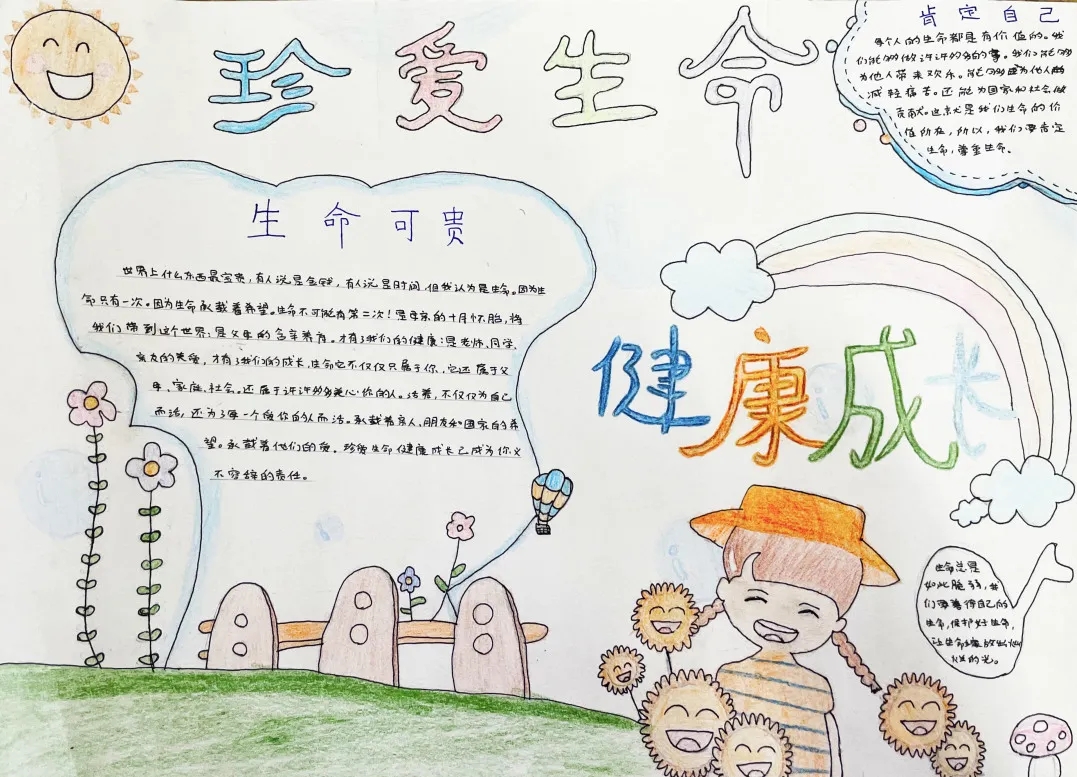 珍爱生命
肯定自己
每个人的生命都是有价值的。我
们能够做许许多多的事。我们能够
为他人带来欢乐。能够为他人
减轻痛苦。还能为国家和社会做
贡献。这就是我们生命的价
值所在,所以,我们要肯定
生命,尊重生命。
生命可贵
世界上什么东西最宝贵,有人说是金钱,有人说是时间,但我认为是生命。因为生
命只有一次。因为生命承载着希望。生命不可能有第二次!是母亲的十月怀胎,将
我们带到这个世界;是父母的含辛养育。才有了我们的健康;是老师、同学、
亲友的关爱,才有了我们的成长,生命它不仅仅只属于你,它还属于父
母、家庭、社会,还属于许许多多关心你的人。活着,不仅仅为自己
而活,还为了每一个爱你的人而活。承载着亲人、朋友和国家的希
望。承载着他们的爱。珍爱生命健康成长已成为你义
不容辞的责任。
健康成长
生命总是
如此脆弱,我
们要善待自己的
生命,保护好生命,
让生命绽放出灿
烂的光。